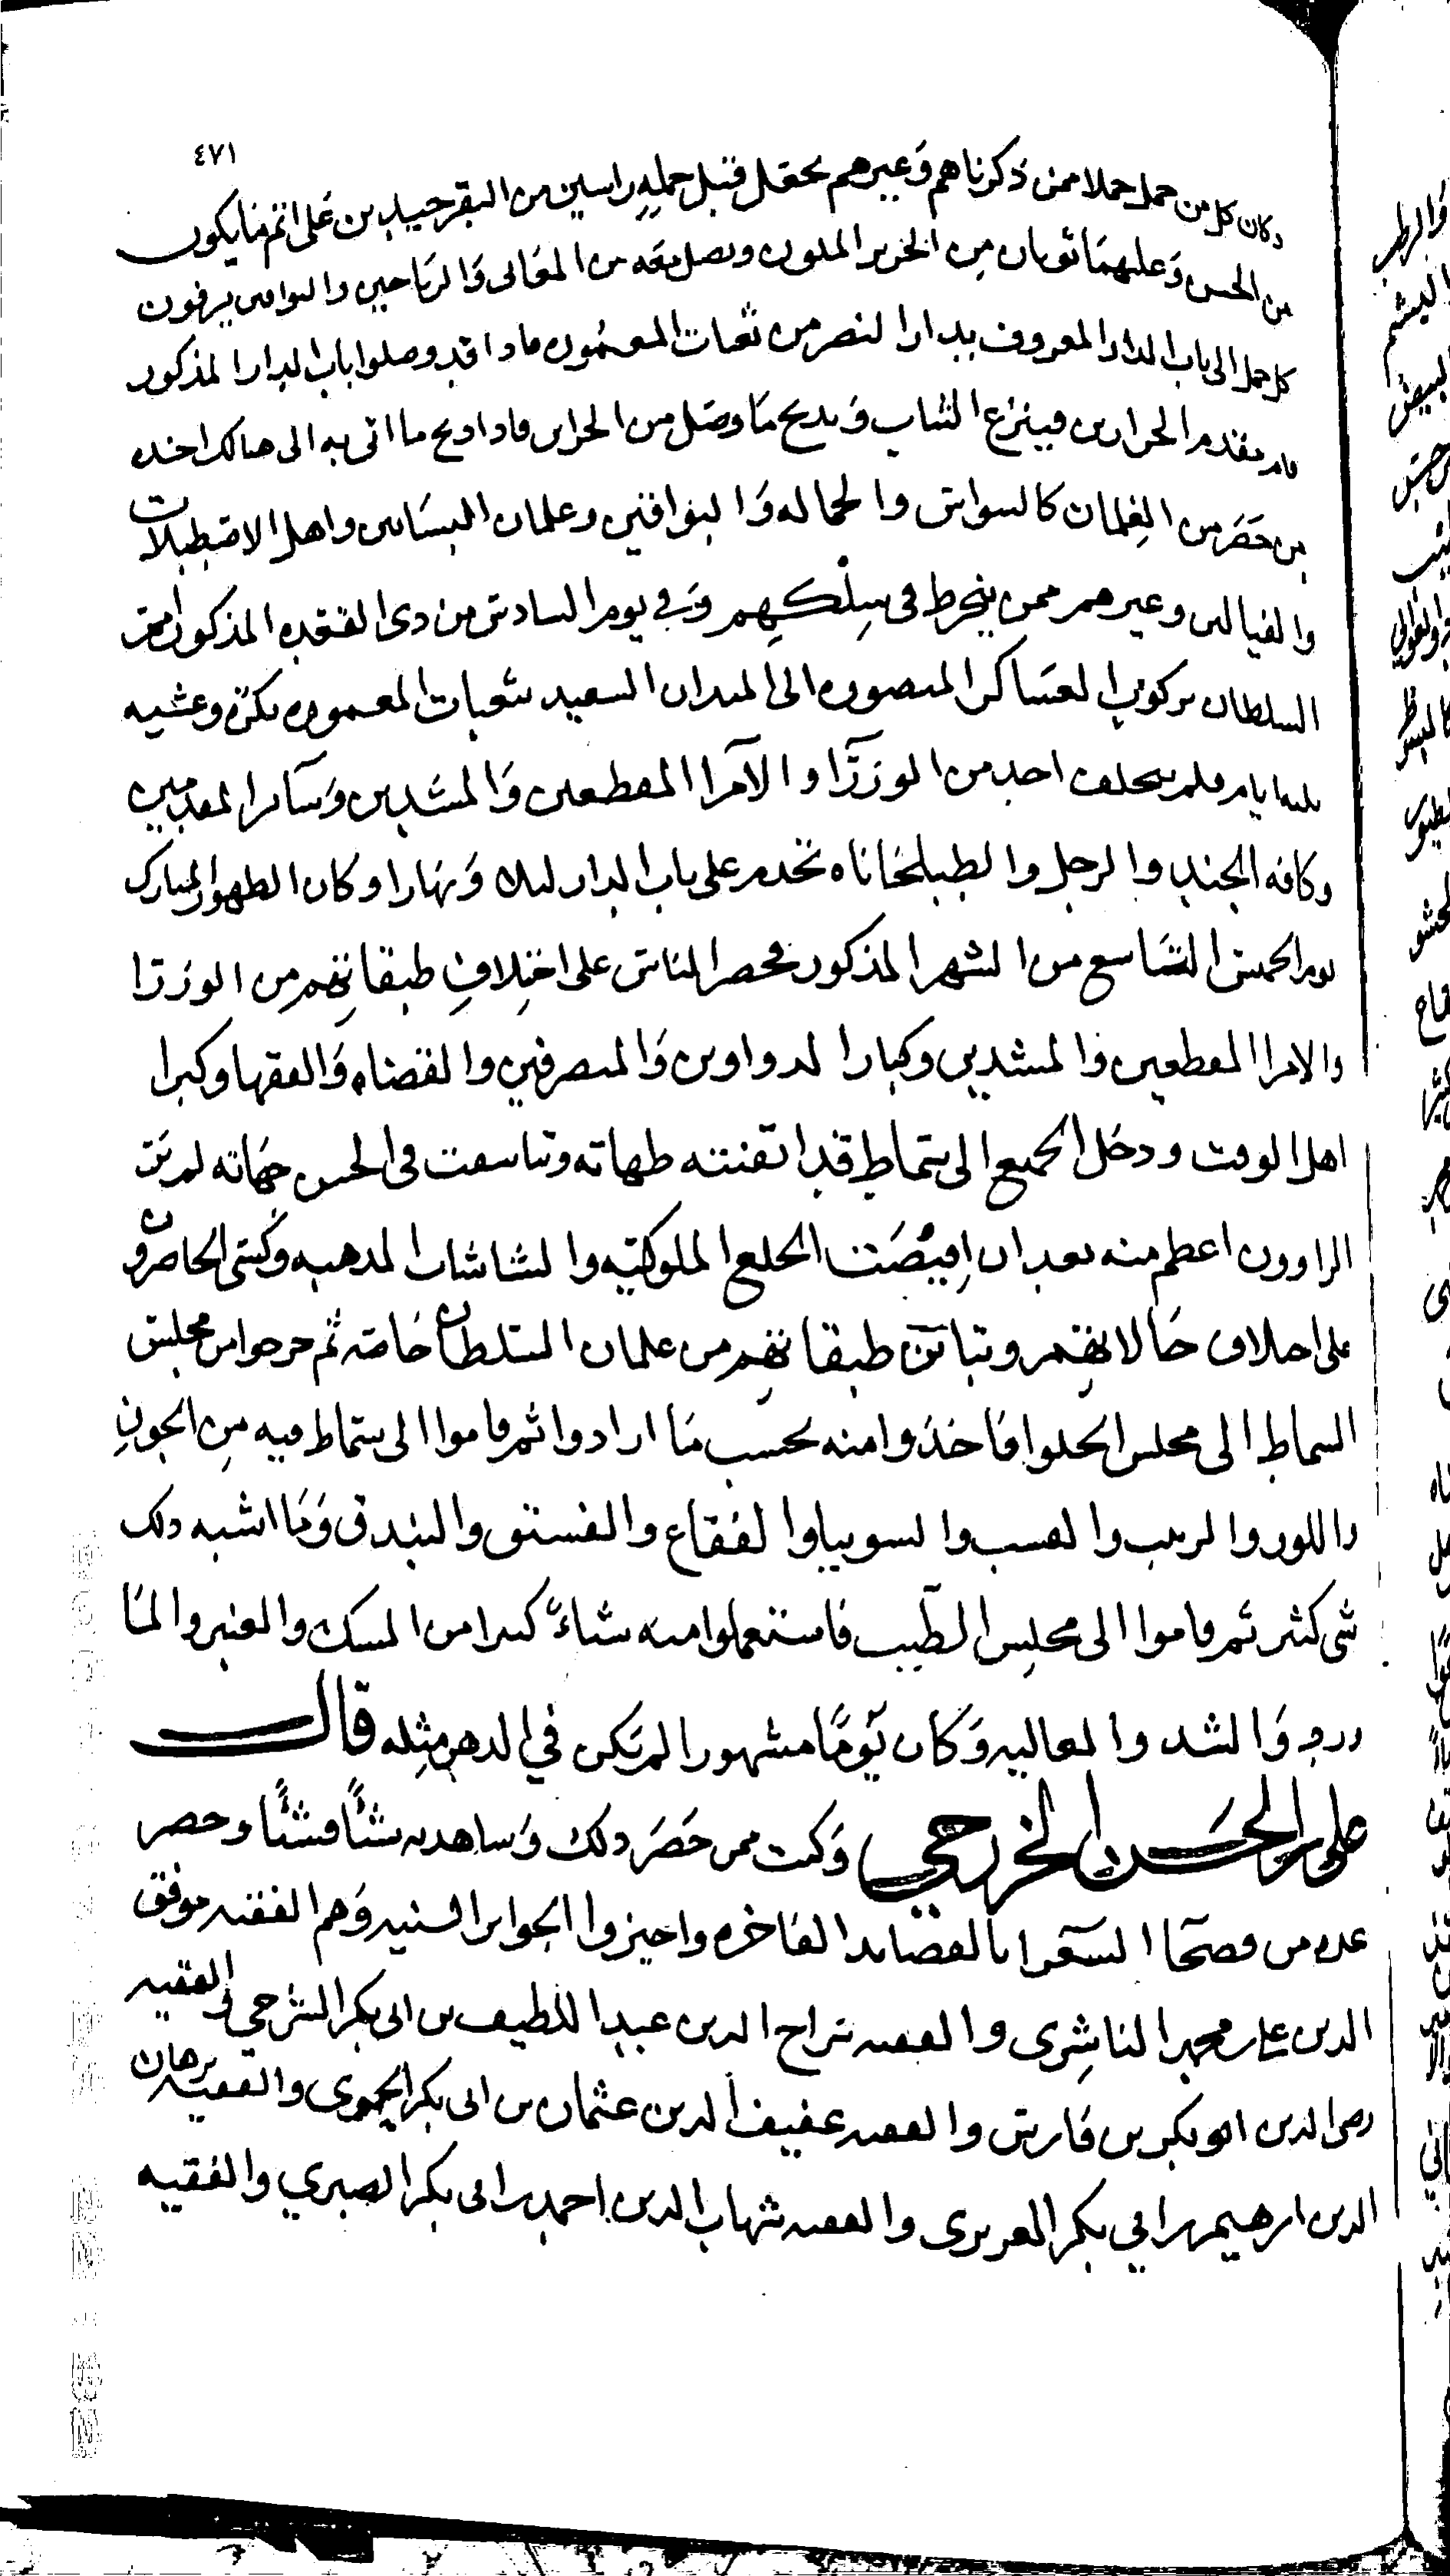 ٤٧١
وكان كل من حمل حملا ممن ذكرناهم وغيرهم يجعل قبل حمله راسين من البقر جيدين على اتم ما يكون
من الحسن وعليهما ثوبان من الحرير الملون ويصل معه من المغاني والرياحين والنوافس يزفون
كل حمل الى باب الدار المعروف بدار النصر من ثعبات المعموره فاذا قد وصلوا باب الدار المذكور
قام مقدم الجزارين فينزع الثياب ويذبح ما وصل من الجزاير فاذا ذبح ما اتى به الى هنالك اخذه
من حضر من الغلمان كالسواس والجماله والبوافين وغلمان البساتين واهل الاصطبلات
والفيالين وغيرهم ممن ينخرط في سلكهم وفي يوم السادس من ذي القعده المذكور امر
السلطان بركوب العساكر المنصوره الى الميدان السعيد بثعبات المعموره بكرة وعشيه
ثلثه ايام فلم يتخلف احد من الوزرآ والامرآ المقطعين والمشدين وسآئر المقدمين
وكافه الجند والرجل والطبلخاناه تخدم على باب الدار ليلا ونهارا وكان الطهور المبارك
يوم الخميس التاسع من الشهر المذكور فحضر الناس على اختلاف طبقاتهم من الوزرآ
والامرا المقطعين والمشدين وكبار الدواوين والمتصرفين والقضاه والفقها وكبرا
اهل الوقت ودخل الجميع الى سماط قد اتقنته طهاته وتناسقت في الحسن جهاته لم ير
الراوون اعظم منه بعد ان افيضت الخلع الملوكيه والشاشات المذهبه وكسى الحاضرون
على اختلاف حالاتهم وتباين طبقاتهم من غلمان السلطان خاصه ثم خرجوا من مجلس
السماط الى مجلس الحلوا فاخذوا منه بحسب ما ارادوا ثم قاموا الى سماط فيه من الجوز
واللوز والزبيب والسوبيا والفقاع والفستق والبندق وما اشبه ذلك
شي كثير ثم قاموا الى مجلس الطيب فاستعملوا منه شياءً كثيرا من المسك والعنبر والما
ورد والند والغاليه وكان يومًا مشهورا لم يكن في الدهر مثله قال
علي بن الحسن الخزرجي وكنت ممن حضر ذلك وشاهدته شئًا فشئًا وحضر
عده من فصحآ الشعرا بالقصايد الفاخره واجيزوا الجوايز السنيه وهم الفقيه موفق
الدين علي بن محمد الناشري والفقيه سراج الدين عبد اللطيف بن ابي بكر الشرجي والفقيه
رضي الدين ابو بكر بن فارس والفقيه عفيف الدين عثمان بن ابي بكر اليحيوي والفقيه برهان
الدين ابرهيم بن ابي بكر والفقيه شهاب الدين احمد بن ابي بكر الصبري والفقيه